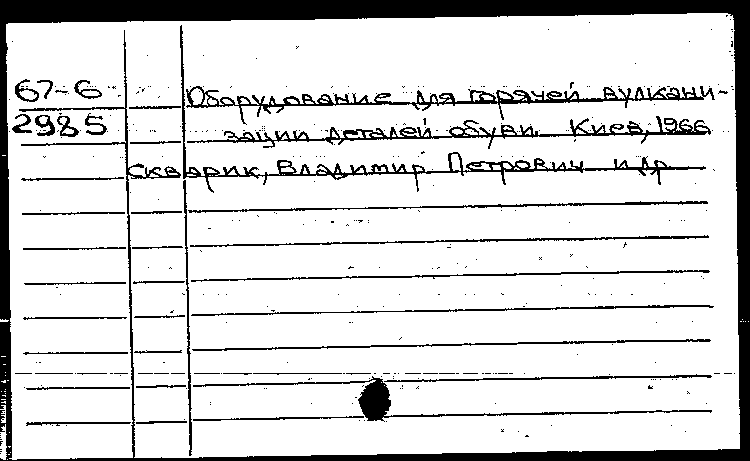 67-6 Оборудование для горячей вулкани-
2985 зации деталей обуви. Киев, 1966
Скварик, Владимир Петрович и др.